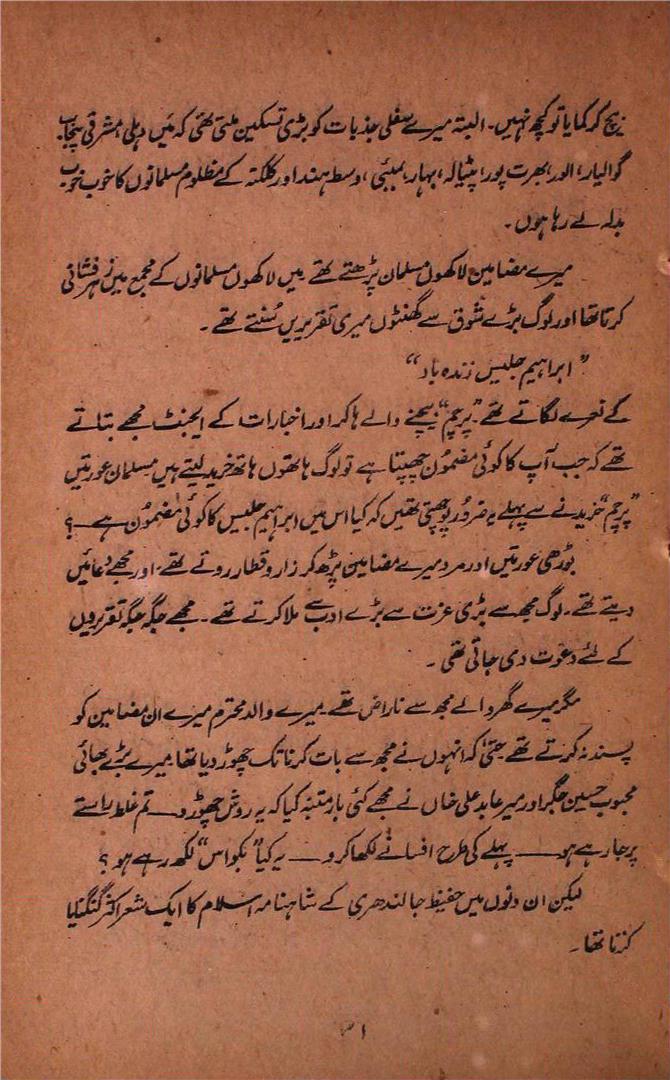 بیچ کر کمایا تو کچھ نہیں۔ البتہ میرے سفلی جذبات کو بڑی تسکین ملتی تھی کہ میں دہلی، مشرقی پنجاب
گوالیار، الور، بھرت پور، پٹیالہ، بہار، بمبئی، وسط ہند اور کلکتہ کے مظلوم مسلمانوں کا خوب خوب
بدلہ لے رہا ہوں۔
میرے مضامین لاکھوں مسلمان پڑھتے تھے میں لاکھوں مسلمانوں کے مجمع میں زہر فشانی
کرتا تھا اور لوگ بڑے شوق سے گھنٹوں میری تقریریں سُنتے تھے۔
"ابراہیم جلیس زندہ باد"
کے نعرے لگاتے تھے۔ "پرچم" بیچنے والے ہاکر اور اخبارات کے ایجنٹ مجھے بتاتے
تھے کہ جب آپ کا کوئی مضمون چھپتا ہے تو لوگ ہاتھوں ہاتھ خرید لیتے ہیں مسلمان عورتیں
"پرچم" خریدنے سے پہلے یہ ضرور پوچھتی تھیں کہ کیا اس میں ابراہیم جلیس کا کوئی مضمون ہے۔؟
بوڑھی عورتیں اور مرد میرے مضامین پڑھ کر زار و قطار روتے تھے۔ اور مجھے دعائیں
دیتے تھے۔ لوگ مجھ سے بڑی عزت سے بڑے ادب سے ملا کرتے تھے۔ مجھے جگہ جگہ تقریروں
کے لئے دعوت دی جاتی تھی۔
مگر میرے گھر والے مجھ سے ناراض تھے۔ میرے والد محترم میرے ان مضامین کو
پسند نہ کرتے تھے حتیٰ کہ انہوں نے مجھ سے بات کرنا تک چھوڑ دیا تھا۔ میرے بڑے بھائی
محبوب حسین جگر اور میر عابد علی خاں نے مجھے کئی بار متنبہ کیا کہ یہ روش چھوڑ دو ــــ تم غلط راستے
پر جا رہے ہو ــــ پہلے کی طرح افسانے لکھا کرو ــــ یہ کیا "بکواس" لکھ رہے ہو؟
لیکن ان دنوں میں حفیظ جالندھری کے شاہنامہ اسلام کا ایک شعر اکثر گنگنایا
کرتا تھا۔